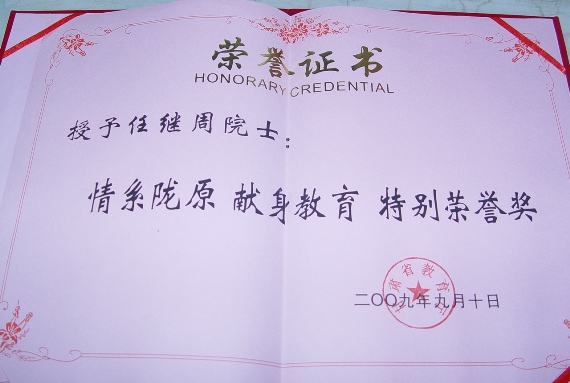 荣誉证书
HONORARY CREDENTIAL
授予任继周院士：
情系陇原 献身教育 特别荣誉奖
甘肃省教育厅
二〇〇九年九月十日